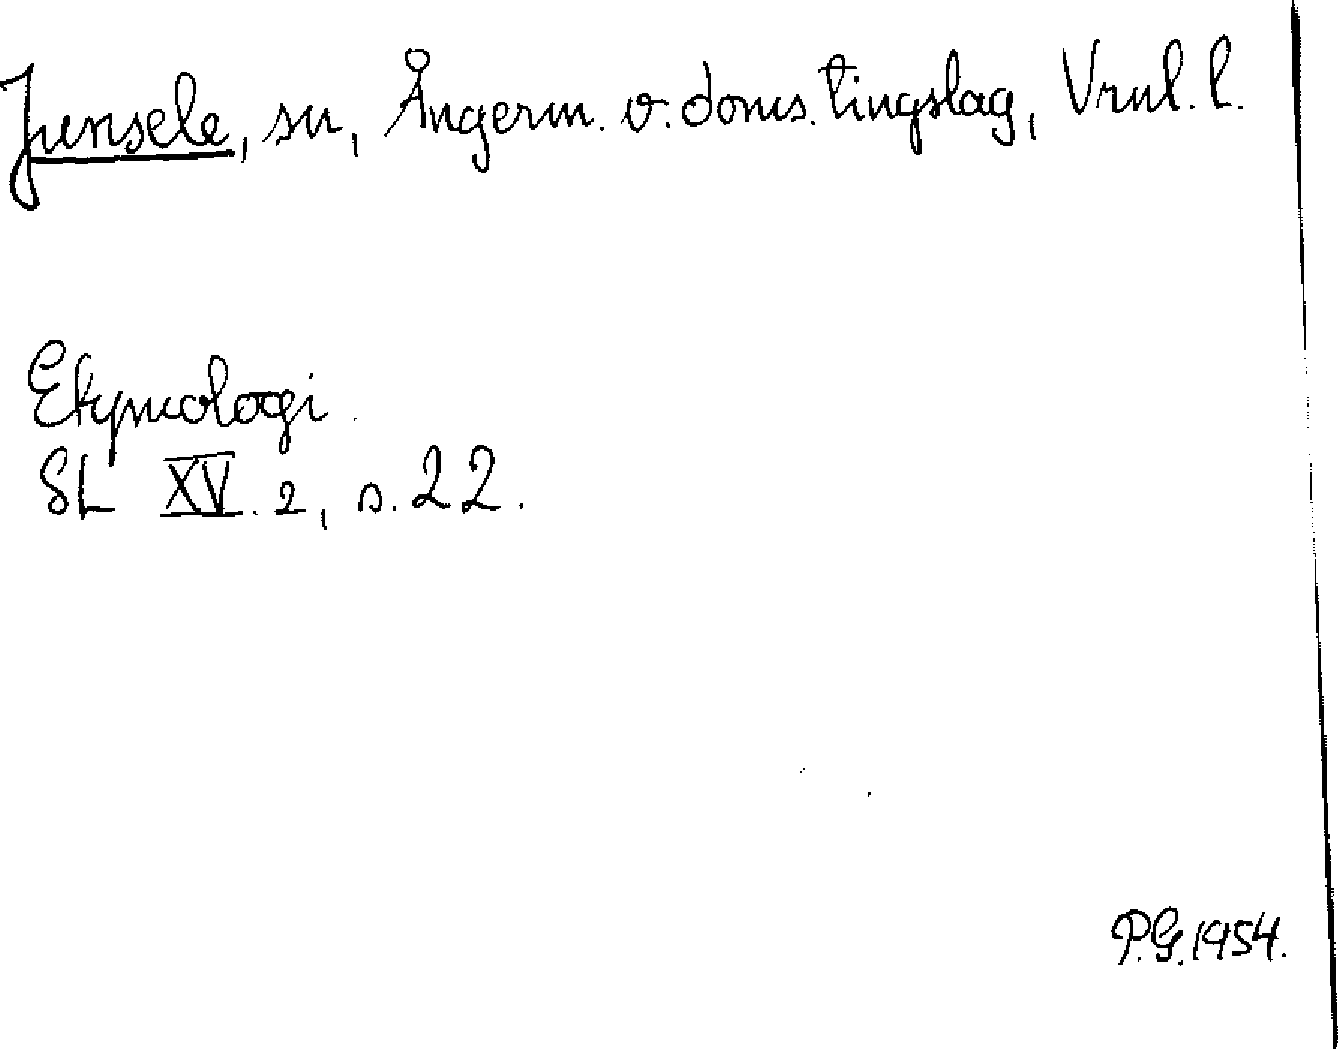 Junsele, sn, Ångerm. v. doms. tingslag, Vrnl. l.
Etymologi.
SL XV. 2, s. 22.
P.G. 1954.